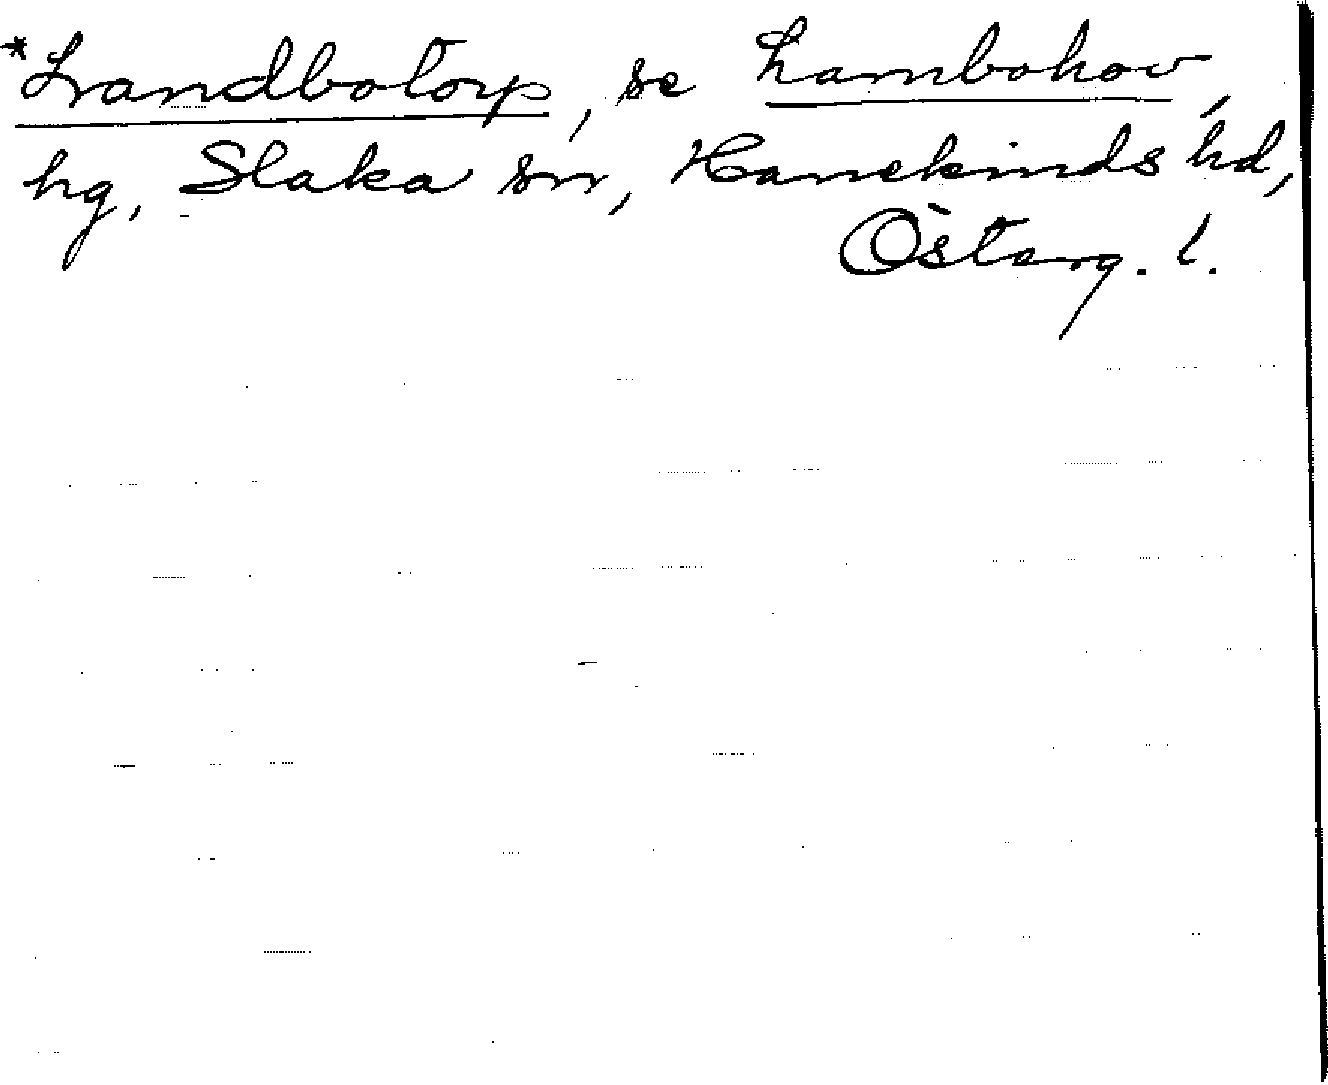 *Landbotorp, se Lambohov,
hg, Slaka sn, Hanekinds hd,
Österg. l.